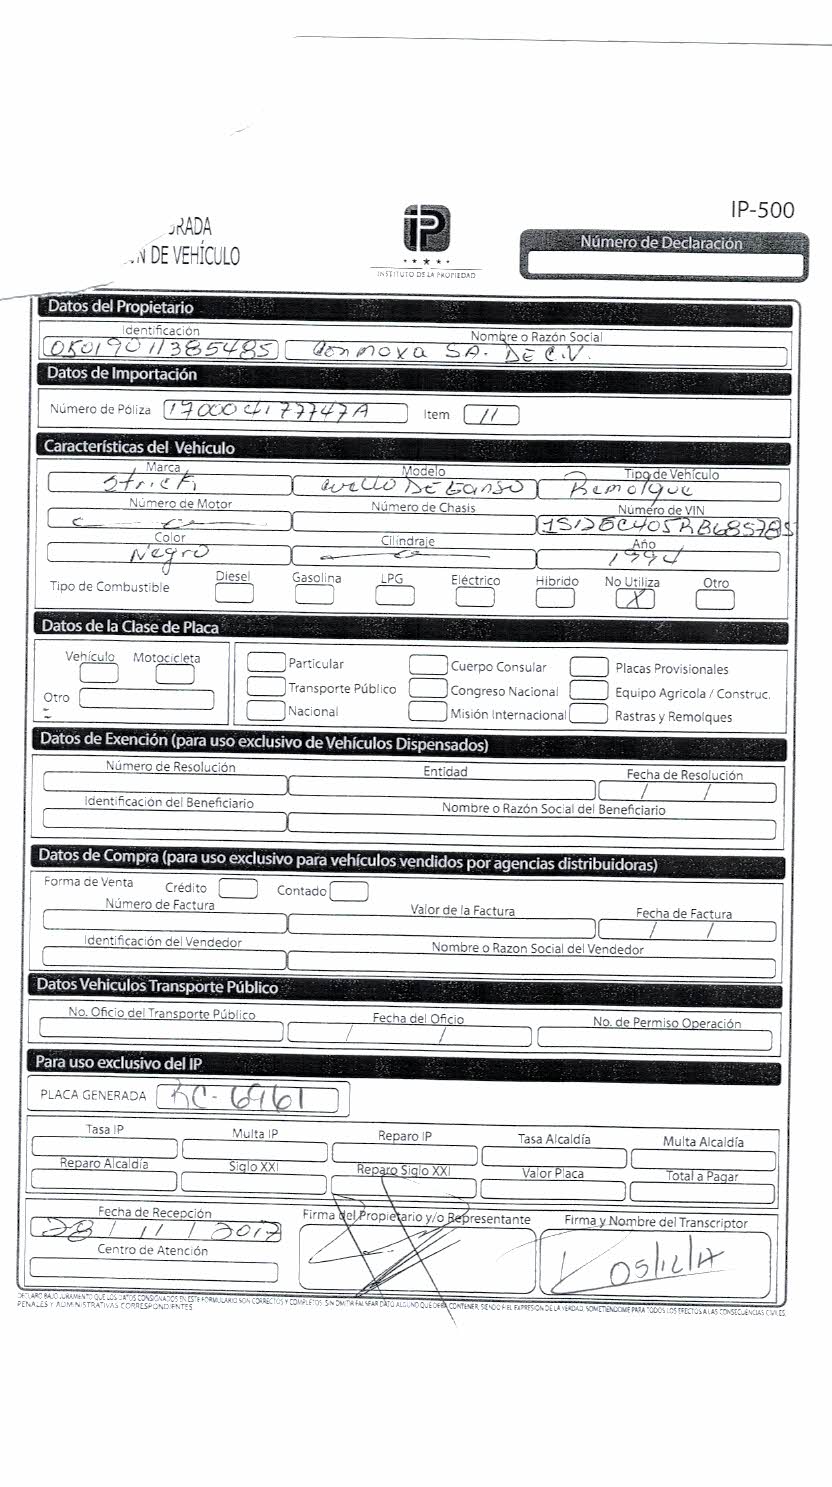 IP-500
RADA
N DE VEHÍCULO
iP
INSTITUTO DE LA PROPIEDAD
Número de Declaración
Datos del Propietario
Identificación
Nombre o Razón Social
05019011385485
SA. DE C.V.
Datos de Importación
Número de Póliza
Item 11
Características del Vehículo
Marca
Modelo
Tipo de Vehículo
Strick
cuello DE Ganso
Remolque
Número de Motor
Número de Chasis
Número de VIN
Color
Cilindraje
Año
Negro
1994
Tipo de Combustible
Diesel
Gasolina
LPG
Eléctrico
Hibrido
No Utiliza
Otro
X
Datos de la Clase de Placa
Vehículo
Motocicleta
Otro
Particular
Cuerpo Consular
Placas Provisionales
Transporte Público
Congreso Nacional
Equipo Agricola / Construc.
Nacional
Misión Internacional
Rastras y Remolques
Datos de Exención (para uso exclusivo de Vehículos Dispensados)
Número de Resolución
Entidad
Fecha de Resolución
/ /
Identificación del Beneficiario
Nombre o Razón Social del Beneficiario
Datos de Compra (para uso exclusivo para vehículos vendidos por agencias distribuidoras)
Forma de Venta
Crédito
Contado
Número de Factura
Valor de la Factura
Fecha de Factura
/ /
Identificación del Vendedor
Nombre o Razon Social del Vendedor
Datos Vehiculos Transporte Público
No. Oficio del Transporte Público
Fecha del Oficio
No. de Permiso Operación
/ /
Para uso exclusivo del IP
PLACA GENERADA RC-6961
Tasa IP
Multa IP
Reparo IP
Tasa Alcaldía
Multa Alcaldía
Reparo Alcaldía
Siglo XXI
Reparo Siglo XXI
Valor Placa
Total a Pagar
Fecha de Recepción
Firma del Propietario y/o Representante
Firma y Nombre del Transcriptor
28 / 11 / 2017
Centro de Atención
05/12/17
DECLARO BAJO JURAMENTO QUE LOS DATOS CONSIGNADOS EN ESTE FORMULARIO SON CORRECTOS Y COMPLETOS, SIN OMITIR FALSEAR DATO ALGUNO QUE DEBA CONTENER, SIENDO FIEL EXPRESION DE LA VERDAD, SOMETIENDOME PARA TODOS LOS EFECTOS A LAS CONSECUENCIAS CIVILES,
PENALES Y ADMINISTRATIVAS CORRESPONDIENTES